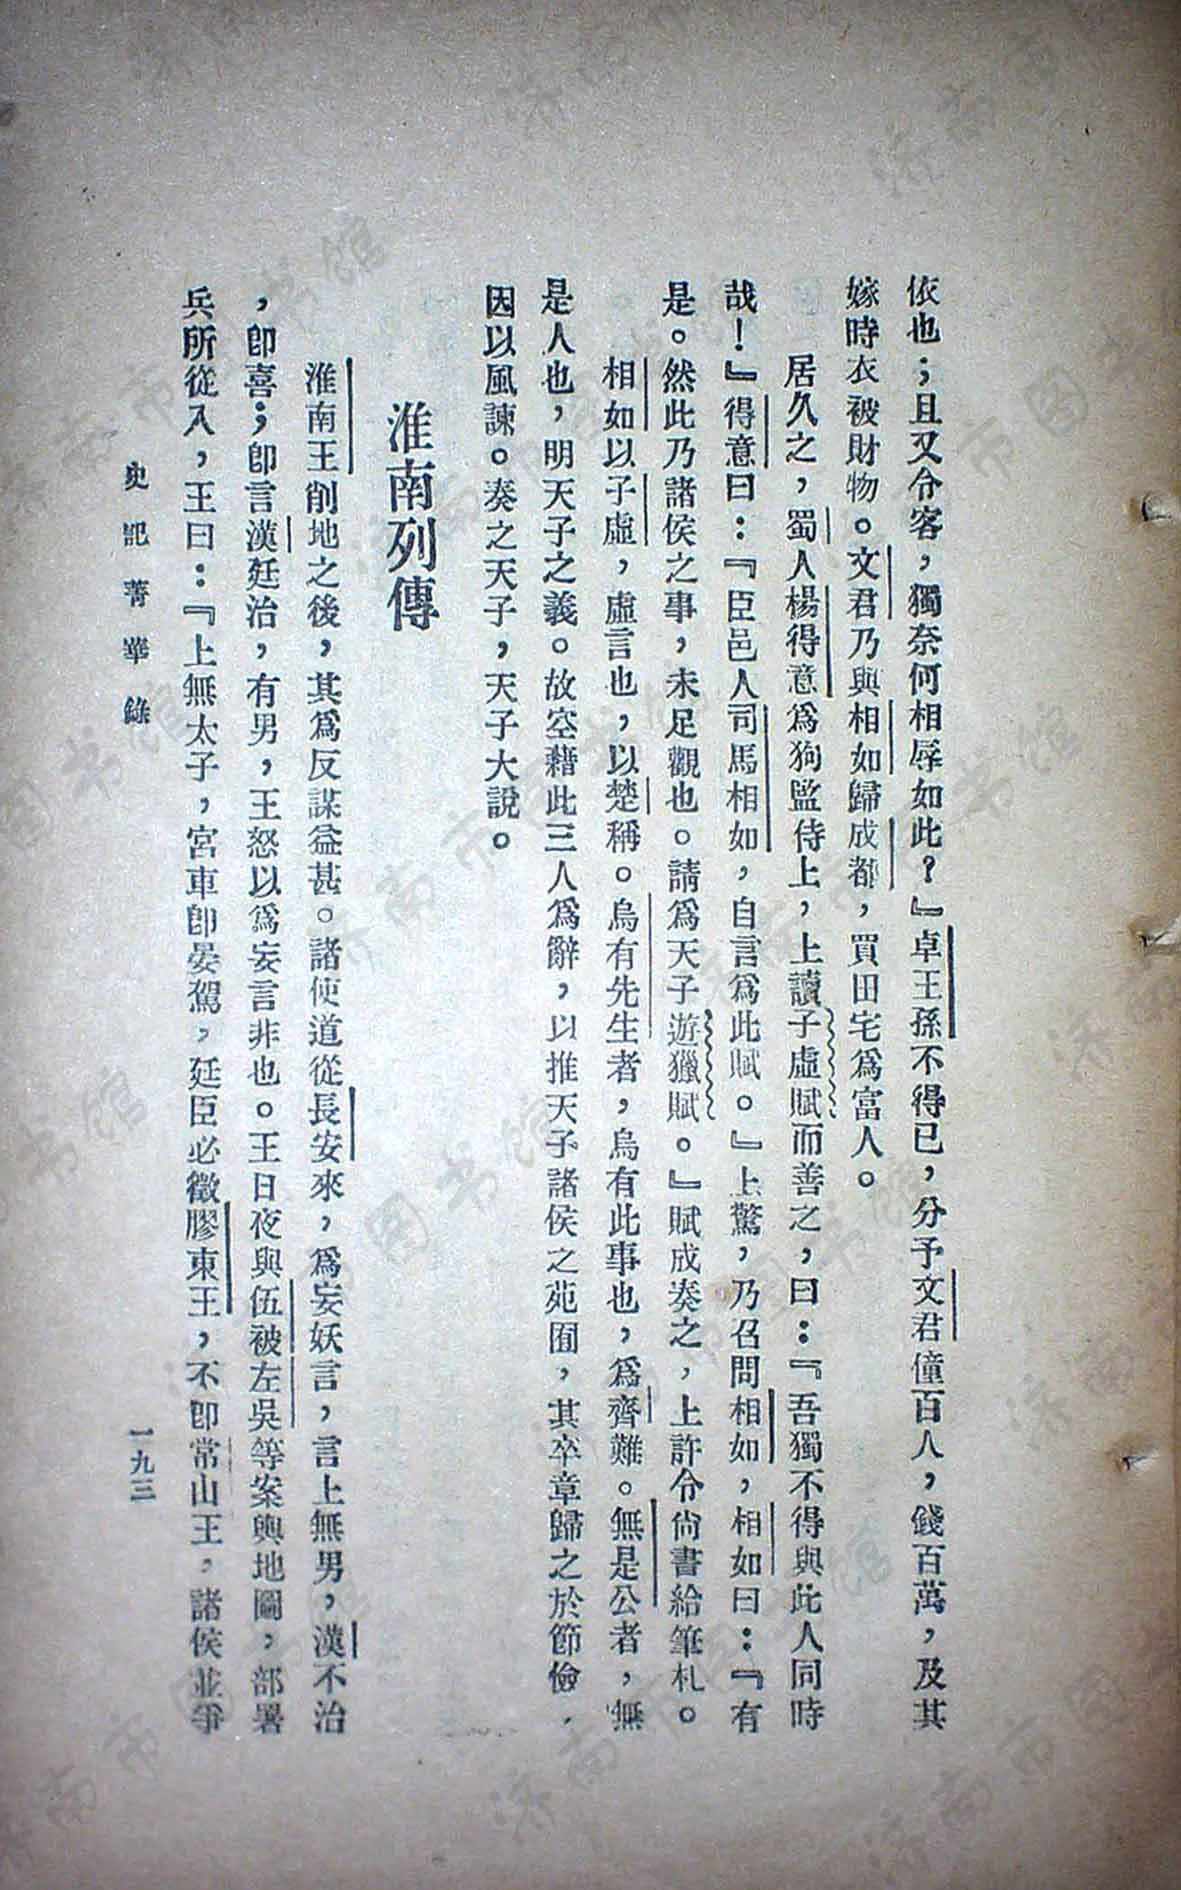 依也；且又令客，獨奈何相辱如此？』卓王孫不得已，分予文君僮百人，錢百萬，及其
嫁時衣被財物。文君乃與相如歸成都，買田宅爲富人。
居久之，蜀人楊得意爲狗監侍上，上讀子虛賦而善之，曰：『吾獨不得與此人同時
哉！』得意曰：『臣邑人司馬相如，自言爲此賦。』上驚，乃召問相如，相如曰：『有
是。然此乃諸侯之事，未足觀也。請爲天子遊獵賦。』賦成奏之，上許令尚書給筆札。
相如以子虛，虛言也，以楚稱。烏有先生者，烏有此事也，爲齊難。無是公者，無
是人也，明天子之義。故空藉此三人爲辭，以推天子諸侯之苑囿，其卒章歸之於節儉，
因以風諫。奏之天子，天子大說。
淮南列傳
淮南王削地之後，其爲反謀益甚。諸使道從長安來，爲妄妖言，言上無男，漢不治
，卽喜；卽言漢廷治，有男，王怒以爲妄言非也。王日夜與伍被左吳等案輿地圖，部署
兵所從入，王曰：『上無太子，宮車卽晏駕，廷臣必徵膠東王，不卽常山王，諸侯並爭
史記菁華錄
一九三
济南市图书馆